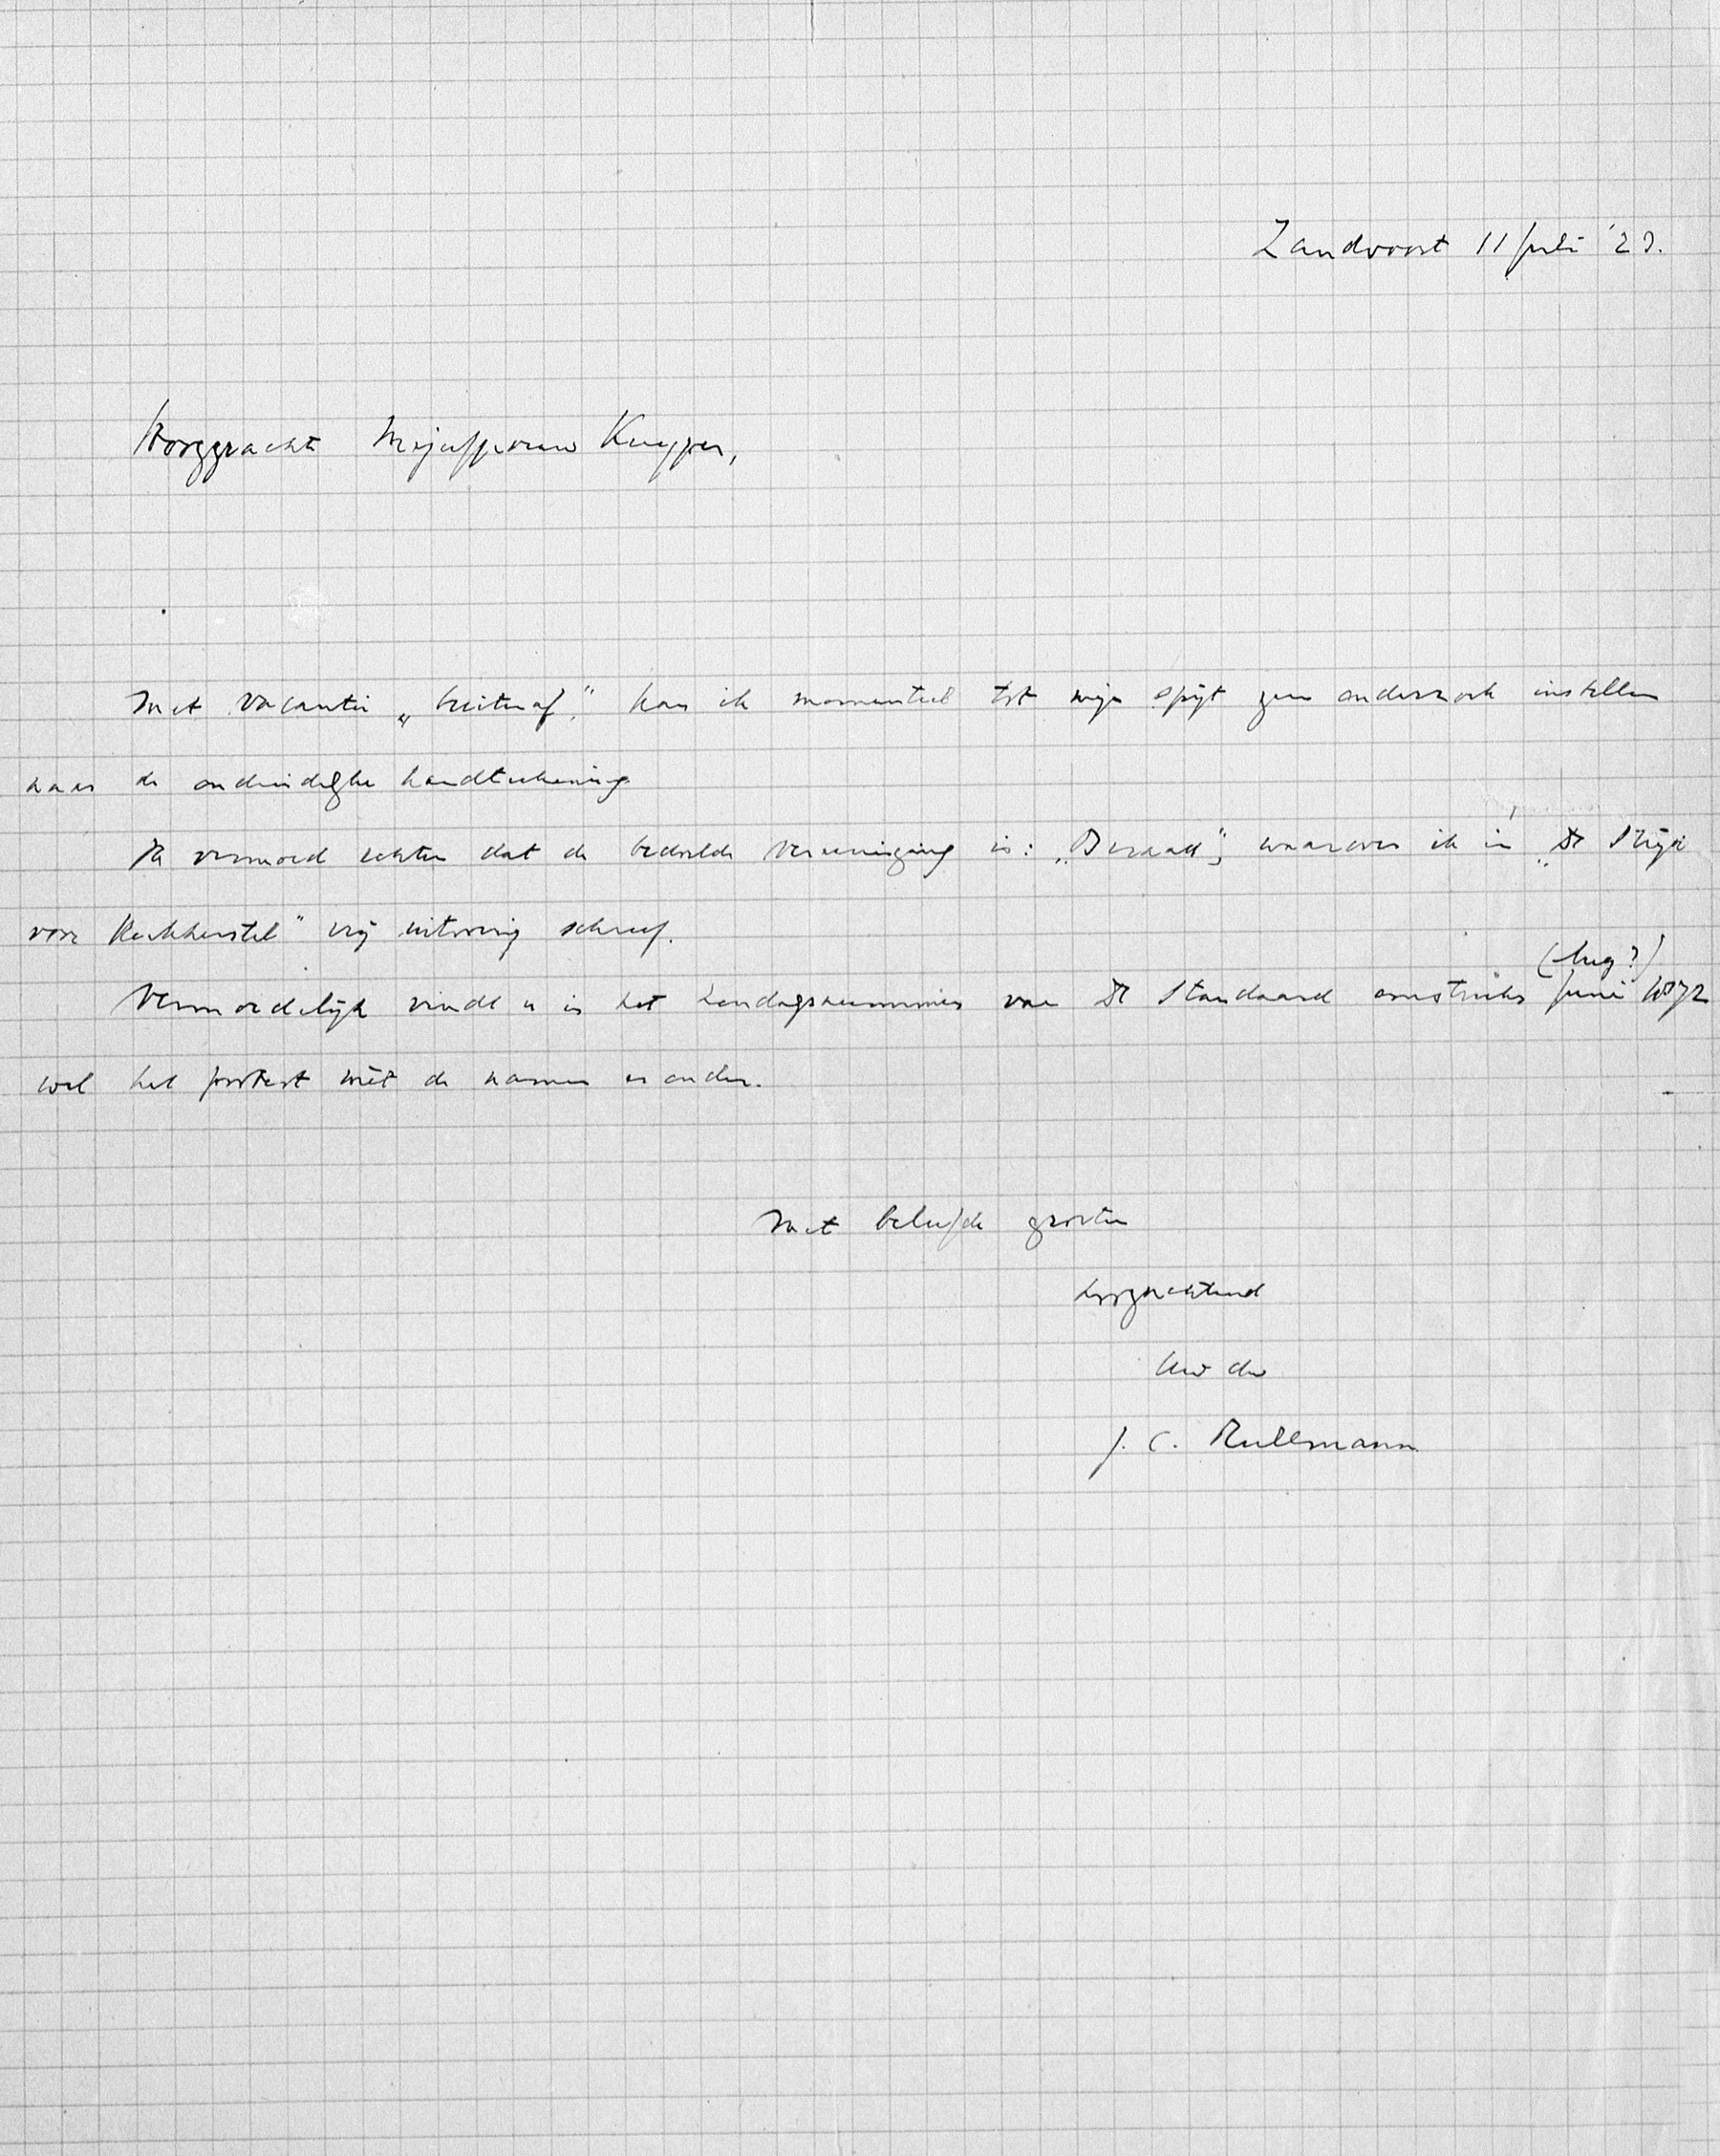 Zandvoort 11 Juli '23.
Hooggeachte Mejuffrouw Kuyper,
Met vacantie „buitenaf”, kan ik momenteel tot mijn spijt geen onderzoek instellen
naar de onduidelijke handteekening.
Ik vermoed echter dat de bedoelde Vereeniging is: „Beraad”, waarover ik in „De Strijd
voor Kerkherstel” vrij uitvoerig schreef.
(Aug?)
Vermoedelijk vindt u in het Zondagsnummer van De Standaard omstreeks Juni 1872
wel het protest mèt de namen er onder.
Met beleefde groeten
hoogachtend
Uw dw
J. C. Rullmann